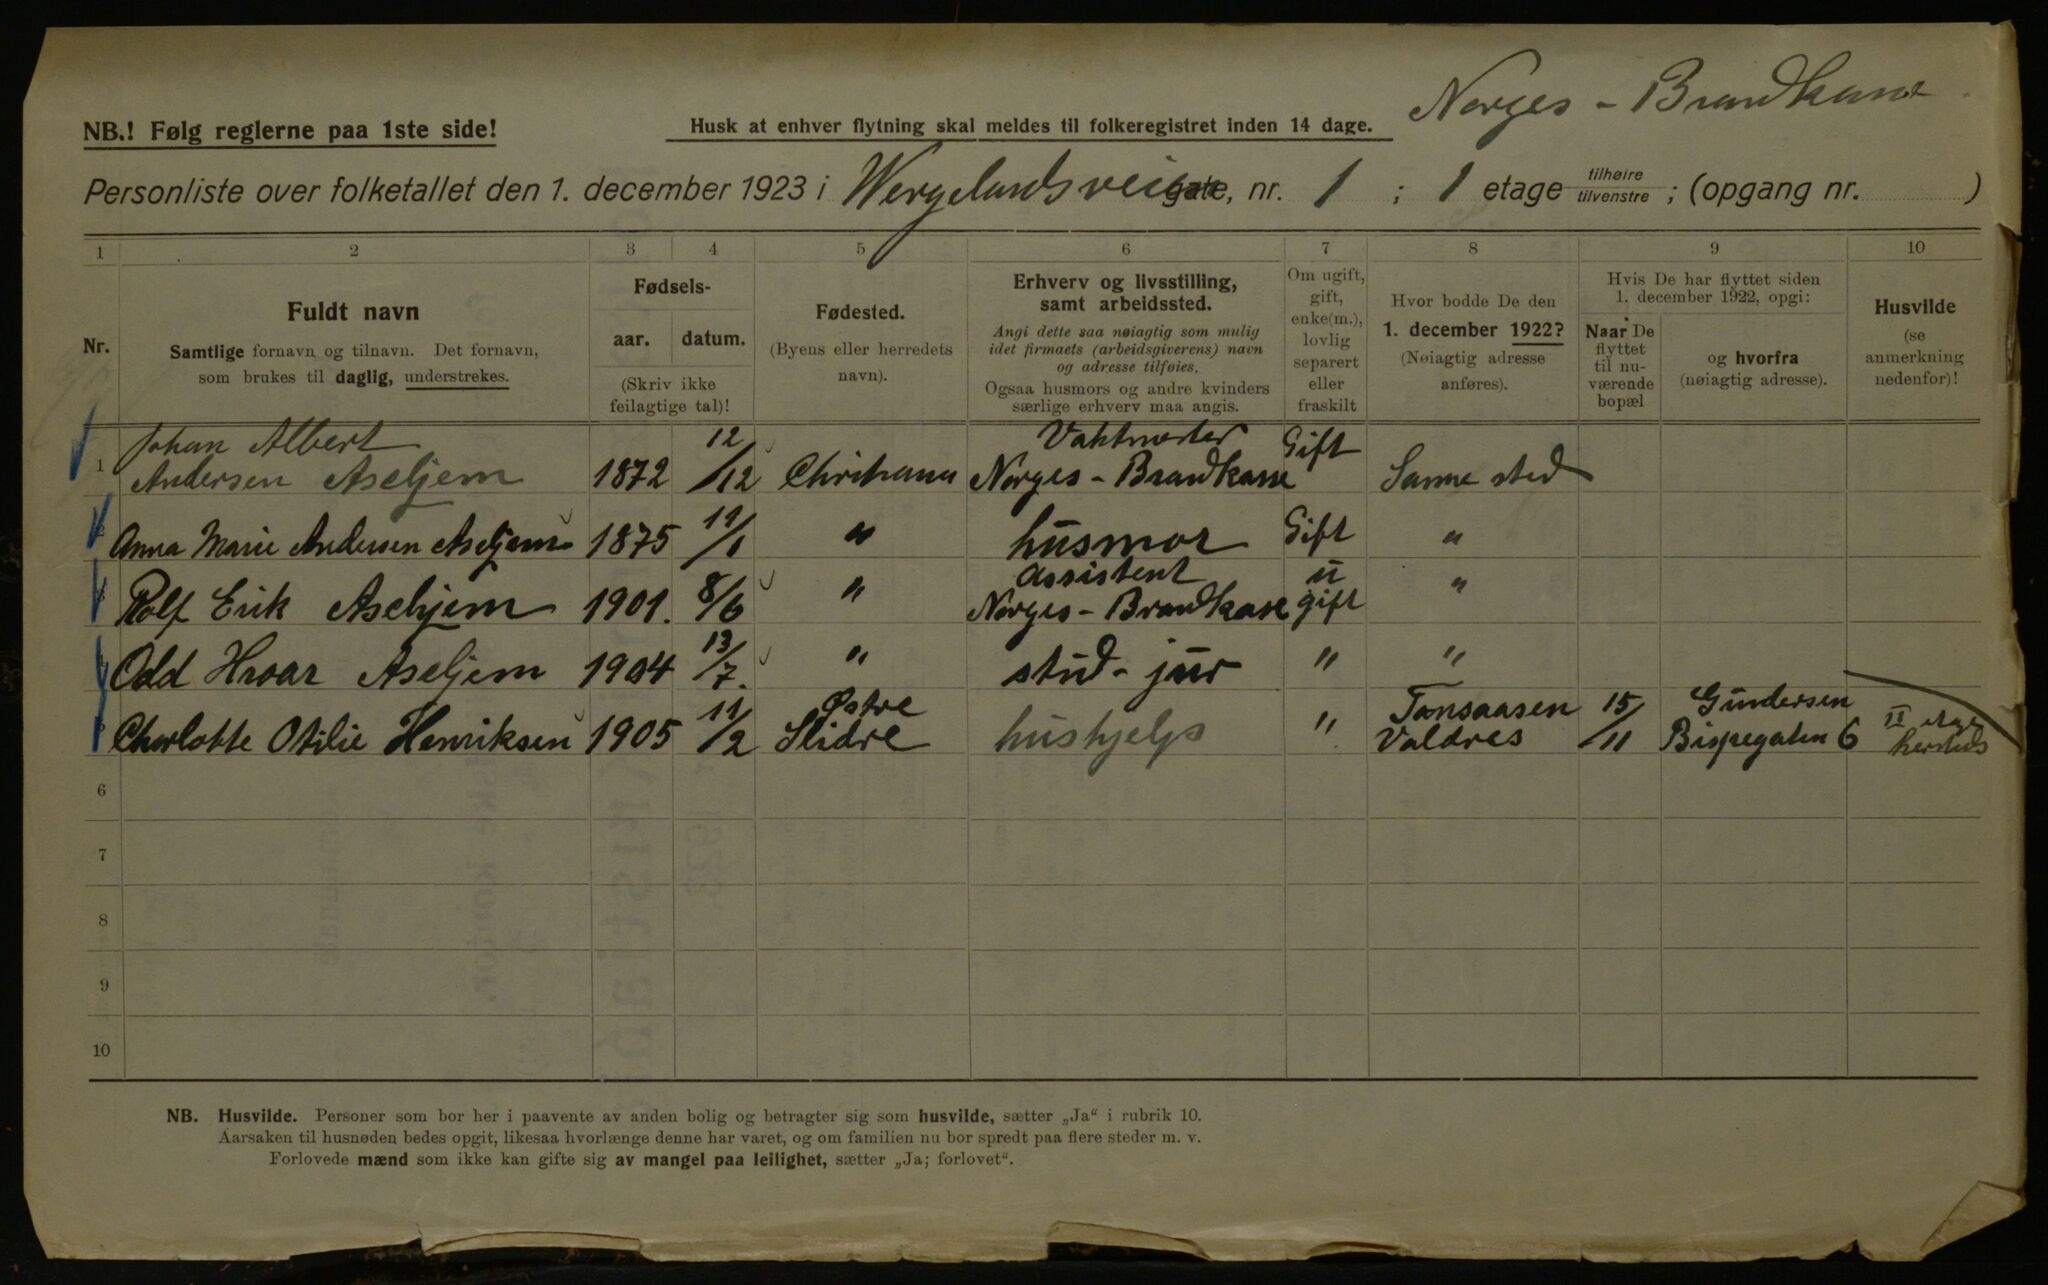 Norges - Brandkasse
NB.! Følg reglerne paa 1ste side!
Husk at enhver flytning skal meldes til folkeregistret inden 14 dage.
Personliste over folketallet den 1. december 1923 i Wergelandsveien gate, nr. 1 ; 1 etage tilhøire tilvenstre ; (opgang nr. )
1 2 3 4 5 6 7 8 9 10
Nr.
Fuldt navn
Samtlige fornavn og tilnavn. Det fornavn,
som brukes til daglig, understrekes.
Fødsels-
aar. datum.
(Skriv ikke
feilagtige tal)!
Fødested.
(Byens eller herredets
navn).
Erhverv og livsstilling,
samt arbeidssted.
Angi dette saa nøiagtig som mulig
idet firmaets (arbeidsgiverens) navn
og adresse tilføies.
Ogsaa husmors og andre kvinders
særlige erhverv maa angis.
Om ugift,
gift,
enke(m.),
lovlig
separert
eller
fraskilt
Hvor bodde De den
1. december 1922?
(Nøiagtig adresse
anføres).
Hvis De har flyttet siden
1. december 1922, opgi:
Naar De
flyttet
til nu-
værende
bopæl
og hvorfra
(nøiagtig adresse).
Husvilde
(se
anmerkning
nedenfor)!
1 Johan Albert
Andersen Aseljem 1872 12/12 Christiania Vaktmester Norges - Brandkasse Gift Samme sted
Anna Marie Andersen Aseljem 1875 11/1 " husmor Gift "
Rolf Erik Aseljem 1901. 8/6 " Assistent Norges - Brandkasse u gift "
Odd Hroar Aseljem 1904 13/7. " stud - jur " "
Charlotte Otilie Henriksen 1905 11/2 Østre Slidre hushjelp " Tonsaasen Valdres 15/11 Gundersen Bispegaten 6 II etage
6
7
8
9
10
NB. Husvilde. Personer som bor her i paavente av anden bolig og betragter sig som husvilde, sætter „Ja“ i rubrik 10.
Aarsaken til husnøden bedes opgit, likesaa hvorlænge denne har varet, og om familien nu bor spredt paa flere steder m. v.
Forlovede mænd som ikke kan gifte sig av mangel paa leilighet, sætter „Ja; forlovet“.